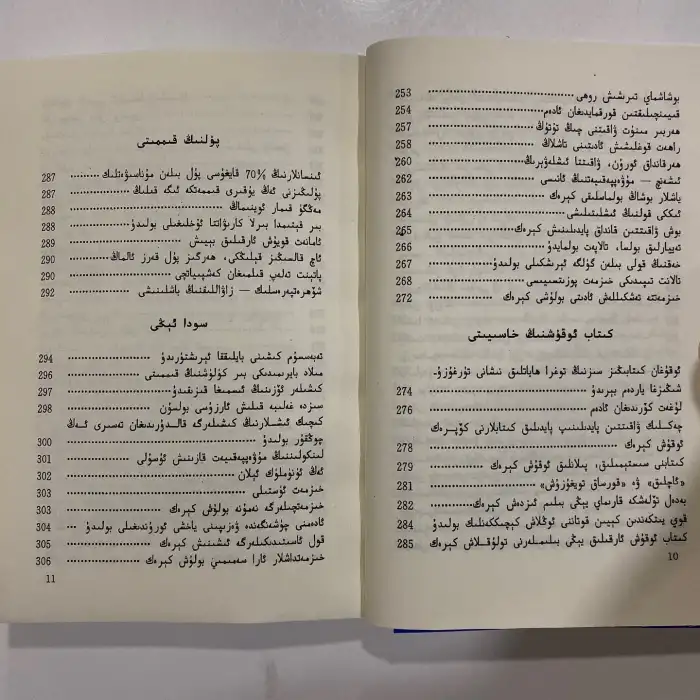 بوشاشماي تىرىشىش روھى ........ 253
قىيىنچىلىقتىن قورقمايدىغان ئادەم ........ 254
ھەربىر مىنۇت ۋاقىتنى چىڭ تۇتۇڭ ........ 257
راھەت قوغلىشىش ئادىتىنى تاشلاڭ ........ 258
ھەرقانداق ئورۇن، ۋاقىتتا ئىشلەۋېرىڭ ........ 260
ئىشەنچ — مۇۋەپپەقىيەتنىڭ ئانىسى ........ 262
ياشلار بوشاڭ بولماسلىقى كېرەك ........ 263
ئىككى قولنىڭ ئىشلىتىلىشى ........ 264
بوش ۋاقىتتىن قانداق پايدىلىنىش كېرەك ........ 265
تەييارلىق بولسا، تالاپەت بولمايدۇ ........ 266
خەقنىڭ قولى بىلەن گۈلگە ئېرىشكىلى بولىدۇ ........ 267
تالانت ئىپىدىكى خىزمەت پوزىتسىيىسى ........ 268
خىزمەتتە تەشكىللەش ئادىتى بولۇشى كېرەك ........ 272
كىتاب ئوقۇشنىڭ خاسىيىتى
ئوقۇغان كىتابىڭىز سىزنىڭ توغرا ھاياتلىق نىشانى تۇرغۇزۇ-
شىڭىزغا ياردەم بېرىدۇ ........ 274
لۇغەت كۆرىدىغان ئادەم ........ 276
چەكلىك ۋاقىتتىن پايدىلىنىپ پايدىلىق كىتابلارنى كۆپرەك
ئوقۇش كېرەك ........ 278
كىتابنى سىستېمىلىق، پىلانلىق ئوقۇش كېرەك ........ 279
«ئاچلىق» ۋە «قورساق تويغۇزۇش» ........ 281
بەدەل تۆلەشكە قارىماي يېڭى بىلىم ئىزدەش كېرەك ........ 282
قوي يىتكەندىن كېيىن قوتاننى ئوڭلاش كېچىككەنلىك بولمىدۇ 284
كىتاب ئوقۇش ئارقىلىق يېڭى بىلىملەرنى تولۇقلاش كېرەك 285
10
پۇلنىڭ قىممىتى
ئىنسانلارنىڭ 70% قايغۇسى پۇل بىلەن مۇناسىۋەتلىك ........ 287
پۇلىڭىزنى ئەڭ يۇقىرى قىممەتكە ئىگە قىلىڭ ........ 287
مەڭگۈ قىمار ئوينىماڭ ........ 288
بىر قېتىمدا بىرلا كارىۋاتتا ئۇخلىغىلى بولىدۇ ........ 288
ئامانەت قويۇش ئارقىلىق بېيىش ........ 289
ئاچ قالسىڭىز قېلىڭكى، ھەرگىز پۇل قەرز ئالماڭ ........ 290
پاتېنت تەلەپ قىلمىغان كەشپىياتچى ........ 290
شۆھرەتپەرەسلىك — زاۋاللىقنىڭ باشلىنىشى ........ 292
سودا ئېڭى
تەبەسسۇم كىشىنى بايلىققا ئېرىشتۈرىدۇ ........ 294
مىلاد بايرىمىدىكى بىر كۈلۈشنىڭ قىممىتى ........ 296
كىشىلەر ئۆزىنىڭ ئىسمىغا قىزىقىدۇ ........ 297
سىزدە غەلىبە قىلىش ئارزۇسى بولسۇن ........ 298
كىچىك ئىشلارنىڭ كىشىلەرگە قالدۇرىدىغان تەسىرى ئەڭ
چوڭقۇر بولىدۇ ........ 300
لىنكولىننىڭ مۇۋەپپەقىيەت قازىنىش ئۇسۇلى ........ 301
ئەڭ ئۈنۈملۈك ئېلان ........ 302
خىزمەت ئۇستىلى ........ 303
خىزمەتچىلەرگە نەمۇنە بولۇش كېرەك ........ 303
ئادەمنى چۈشەنگەندە ۋەزىپىنى ياخشى ئورۇندىغىلى بولىدۇ ... 304
قول ئاستىدىكىلەرگە ئىشىنىش كېرەك ........ 305
خىزمەتداشلار ئارا سەمىمىي بولۇش كېرەك ........ 306
11